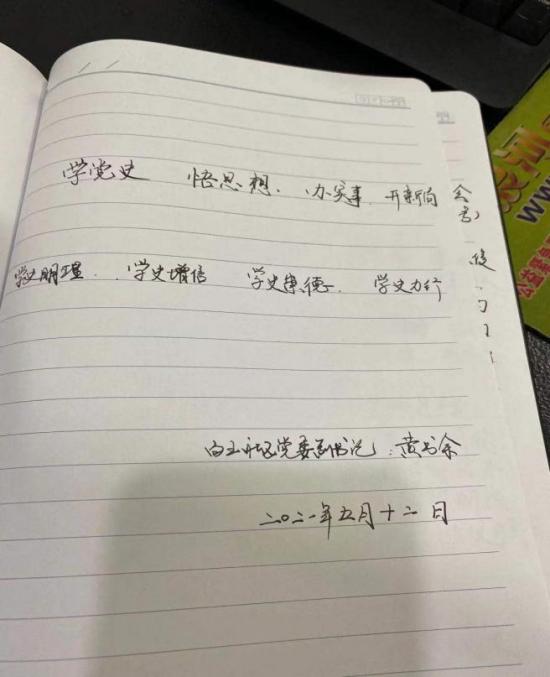 学党史 悟思想、办实事 开新局
学史明理、学史增信 学史崇德、学史力行
白玉社区党委副书记：黄书余
二〇二一年五月十二日
www.
公益